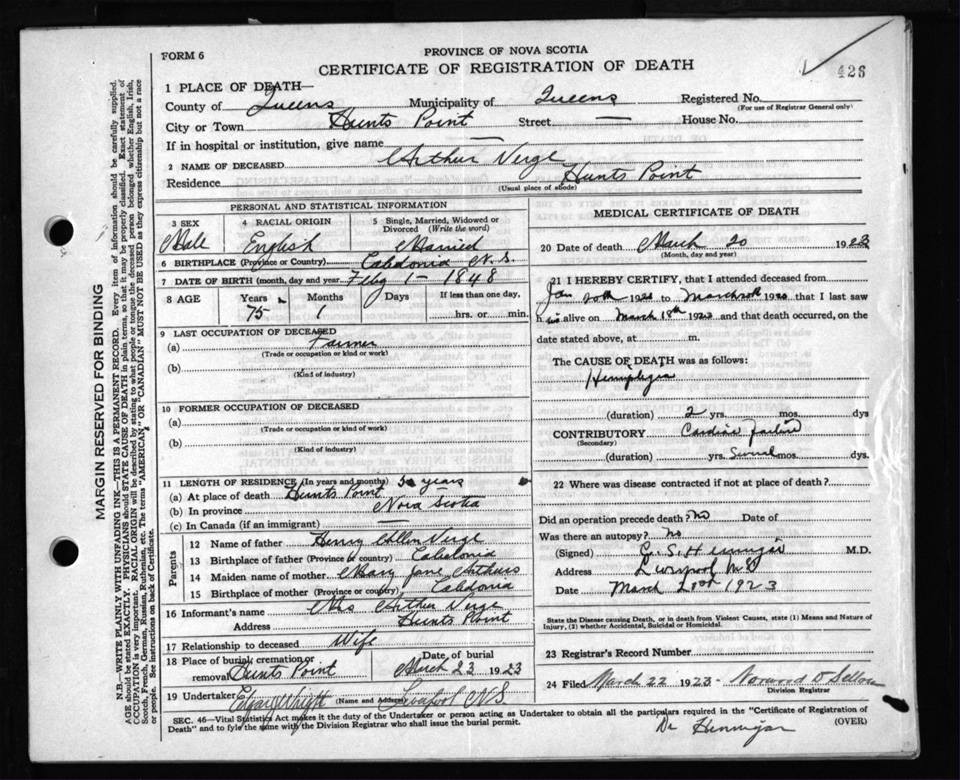 426
FORM 6
PROVINCE OF NOVA SCOTIA
CERTIFICATE OF REGISTRATION OF DEATH
MARGIN RESERVED FOR BINDING
N.B.—WRITE PLAINLY WITH UNFADING INK—THIS IS A PERMANENT RECORD. Every item of information should be carefully supplied.
AGE should be stated EXACTLY. PHYSICIANS should STATE CAUSE OF DEATH in plain terms, so that it may be properly classified. Exact statement of
OCCUPATION is very important. RACIAL ORIGIN will be described by stating to what people or tongue the deceased person belonged whether English, Irish,
Scotch, French, German, Russian, Ruthenian, etc. The terms "AMERICAN" OR "CANADIAN" MUST NOT BE USED as they express citizenship but not a race
or people. See instructions on back of Certificate.
1 PLACE OF DEATH—
County of Queens Municipality of Queens Registered No.
(For use of Registrar General only)
City or Town Hunts Point Street — House No.
If in hospital or institution, give name —
2 NAME OF DECEASED Arthur Verge
Residence Hunts Point
(Usual place of abode)
PERSONAL AND STATISTICAL INFORMATION
3 SEX Male
4 RACIAL ORIGIN English
5 Single, Married, Widowed or Divorced (Write the word) Married
6 BIRTHPLACE (Province or Country) Caledonia N.S.
7 DATE OF BIRTH (month, day and year) 1 - 1848
8 AGE Years Months Days If less than one day,
75 1 hrs. or min.
9 LAST OCCUPATION OF DECEASED
(a) Farmer
(Trade or occupation or kind or work)
(b)
(Kind of industry)
10 FORMER OCCUPATION OF DECEASED
(a)
(Trade or occupation or kind of work)
(b)
(Kind of industry)
11 LENGTH OF RESIDENCE (In years and months) years
(a) At place of death Hunts Point
(b) In province Nova Scotia
(c) In Canada (if an immigrant) —
Parents
12 Name of father Henry Allen Verge
13 Birthplace of father (Province or country) Caledonia
14 Maiden name of mother Mary Jane Arthurs
15 Birthplace of mother (Province or country) Caledonia
16 Informant's name Mrs Arthur Verge
Address Hunts Point
17 Relationship to deceased Wife
18 Place of burial, cremation or removal Hunts Point Date of burial March 23 1923
19 Undertaker Wright (Name and Address) Liverpool N.S.
MEDICAL CERTIFICATE OF DEATH
20 Date of death March 20 1923
(Month, day and year)
21 I HEREBY CERTIFY, that I attended deceased from
Jan 20th 1920 to March 20th 1920 that I last saw
h is alive on March 18th 1923 and that death occurred, on the
date stated above, at m.
The CAUSE OF DEATH was as follows:
Hemiplegia
(duration) 2 yrs. mos. dys
CONTRIBUTORY Cardiac failure
(Secondary)
(duration) yrs. Several mos. dys.
22 Where was disease contracted if not at place of death?
Did an operation precede death? No Date of
Was there an autopsy? No
(Signed) Hennigar M.D.
Address Liverpool
Date March 1923
State the Disease causing Death, or in death from Violent Causes, state (1) Means and Nature of
Injury, (2) whether Accidental, Suicidal or Homicidal.
23 Registrar's Record Number
24 Filed March 22 1923 Norwood D Sellon
Division Registrar
SEC. 46—Vital Statistics Act makes it the duty of the Undertaker or person acting as Undertaker to obtain all the particulars required in the "Certificate of Registration of
Death" and to fyle the same with the Division Registrar who shall issue the burial permit. (OVER)
Dr Hennigar